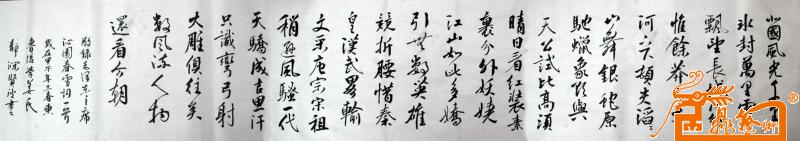 北國風光千里
冰封萬里雪
飄望長城
惟餘莽
河上下頓失滔滔
山舞銀蛇原
馳蠟象欲與
天公試比高須
晴日看紅裝素
裹分外妖嬈
江山如此多嬌
引無數英雄
競折腰惜秦
皇漢武略輸
文采唐宗宋祖
稍遜風騷一代
天驕成吉思汗
只識彎弓射
大雕俱往矣
數風流人物
還看今朝
敬錄毛澤東主席
沁園春雪詞一首
歲在甲午年春東
魯後學姜氏